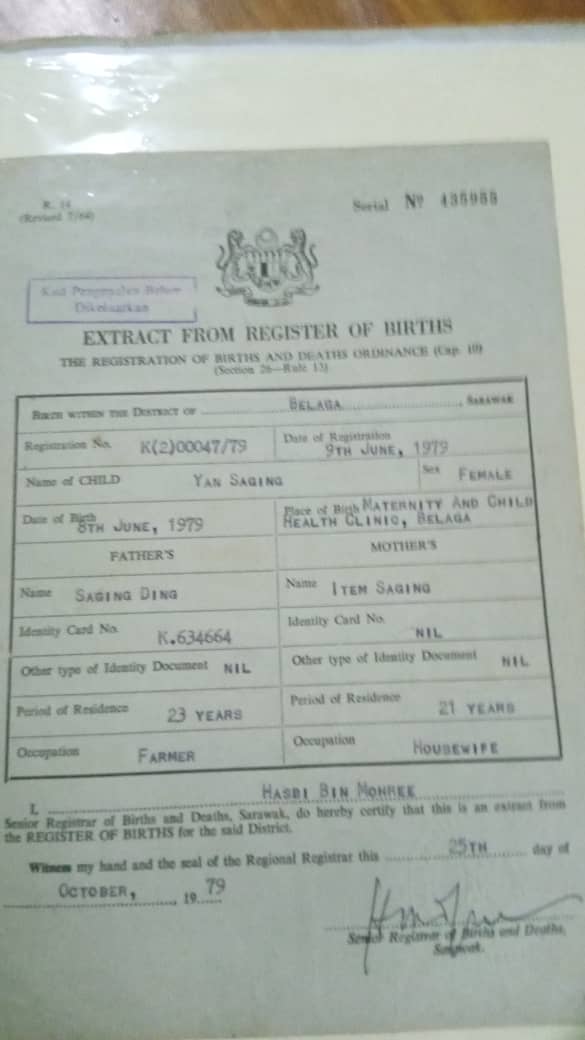 R. 14
(Revised 7/64)
Serial Nº
Kad Pengenalan Belum
Dikeluarkan
EXTRACT FROM REGISTER OF BIRTHS
THE REGISTRATION OF BIRTHS AND DEATHS ORDINANCE (Cap. 10)
(Section 26—Rule 13)
BIRTH WITHIN THE DISTRICT OF BELAGA, SARAWAK
Registration No. K(2)00047/79 Date of Registration 9TH JUNE, 1979
Name of CHILD YAN SAGING Sex FEMALE
Date of Birth 8TH JUNE, 1979 Place of Birth MATERNITY AND CHILD
HEALTH CLINIC, BELAGA
FATHER'S MOTHER'S
Name SAGING DING Name ITEM SAGING
Identity Card No. K.634664 Identity Card No. NIL
Other type of Identity Document NIL Other type of Identity Document NIL
Period of Residence 23 YEARS Period of Residence 21 YEARS
Occupation FARMER Occupation HOUSEWIFE
I, HASBI BIN
Senior Registrar of Births and Deaths, Sarawak, do hereby certify that this is an extract from
the REGISTER OF BIRTHS for the said District.
Witness my hand and the seal of the Regional Registrar this 25TH day of
OCTOBER, 19 79
Senior Registrar of Births and Deaths,
Sarawak.